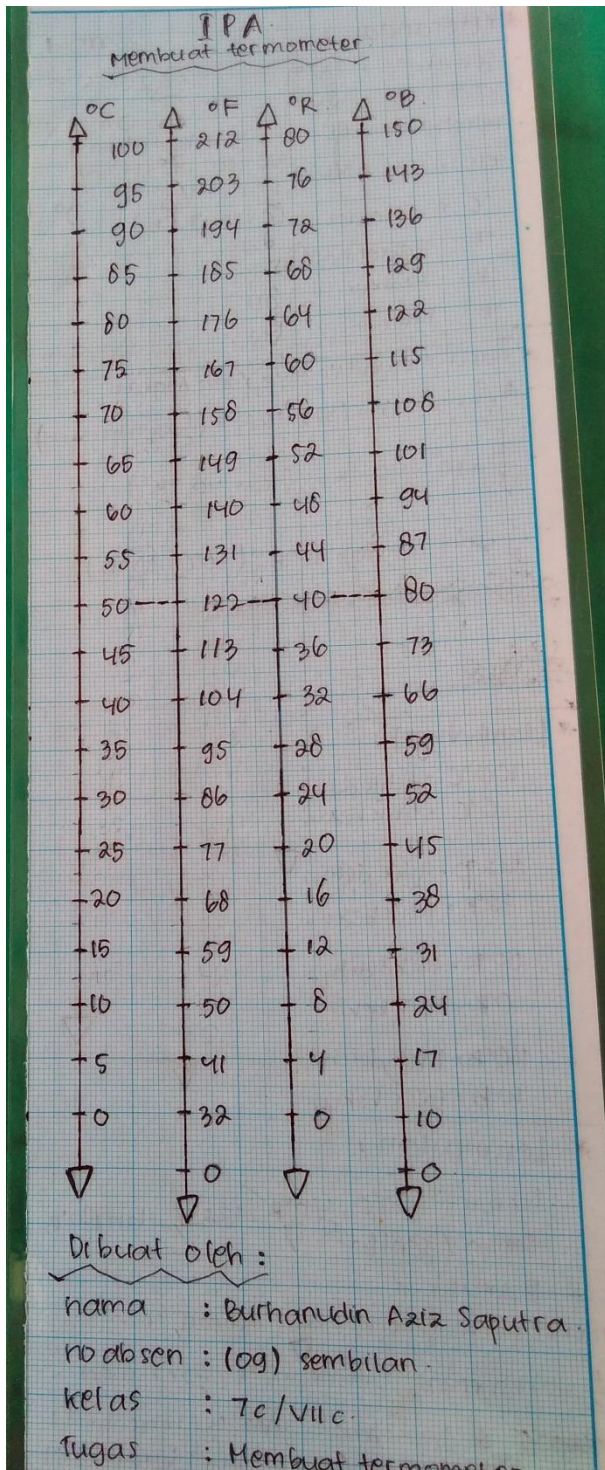 IPA
Membuat termometer
°C °F °R °B
100 212 80 150
95 203 76 143
90 194 72 136
85 185 68 129
80 176 64 122
75 167 60 115
70 158 56 108
65 149 52 101
60 140 48 94
55 131 44 87
50 122 40 80
45 113 36 73
40 104 32 66
35 95 28 59
30 86 24 52
25 77 20 45
20 68 16 38
15 59 12 31
10 50 8 24
5 41 4 17
0 32 0 10
0 0
Dibuat oleh :
nama : Burhanudin Aziz Saputra.
no absen : (09) sembilan.
kelas : 7c/VIIc.
Tugas : Membuat termometer